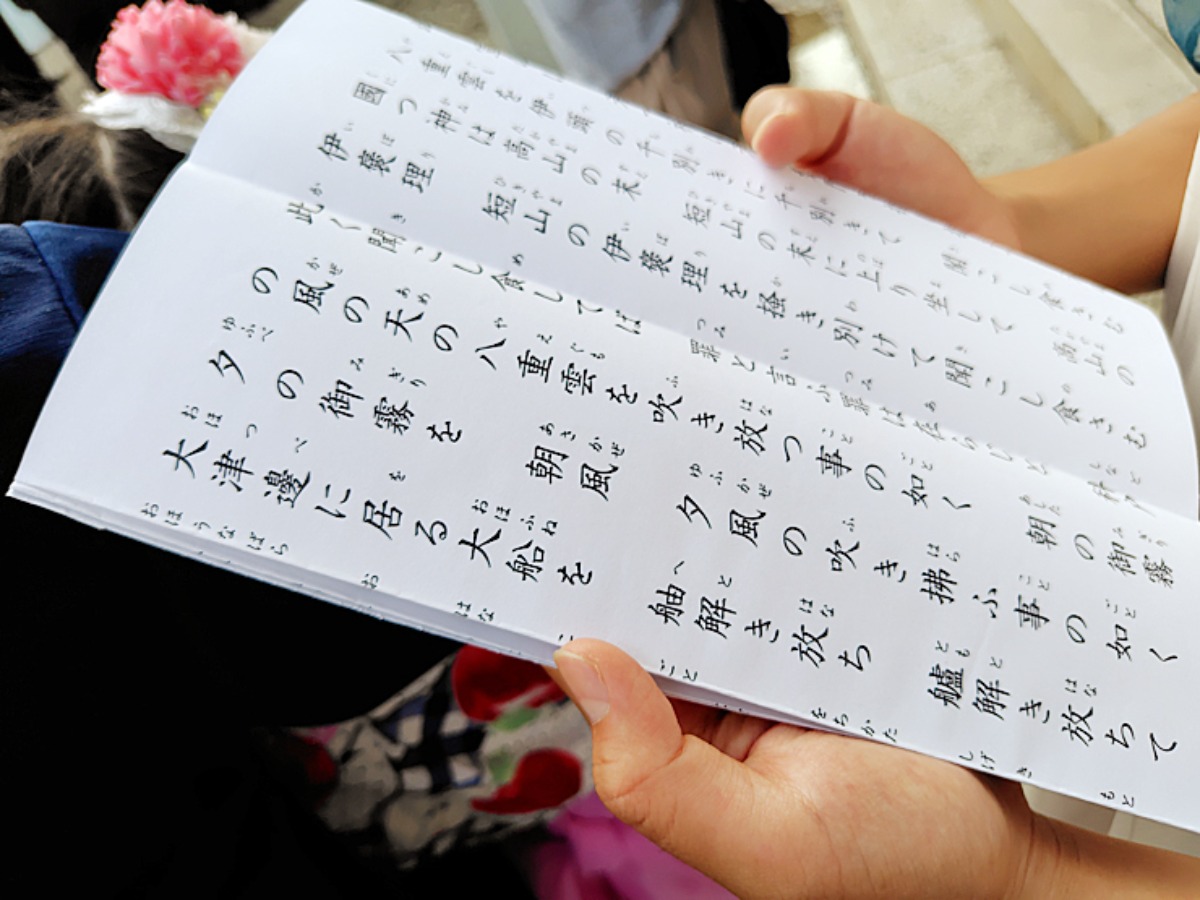 八重雲を伊頭の千別きに千別きて 聞こし食さむ
國つ神は高山の末 短山の末に上り坐して 高山の
伊褒理 短山の伊褒理を掻き別けて聞こし食さむ
此く聞こし食してば 罪と言ふ罪は在らじと
の風の天の八重雲を吹き放つ事の如く 朝の御霧
夕の御霧を 朝風 夕風の吹き拂ふ事の如く
大津邊に居る大船を 舳解き放ち 艫解き放ちて
おほうなばら お はな ごと をちかた しげき もと